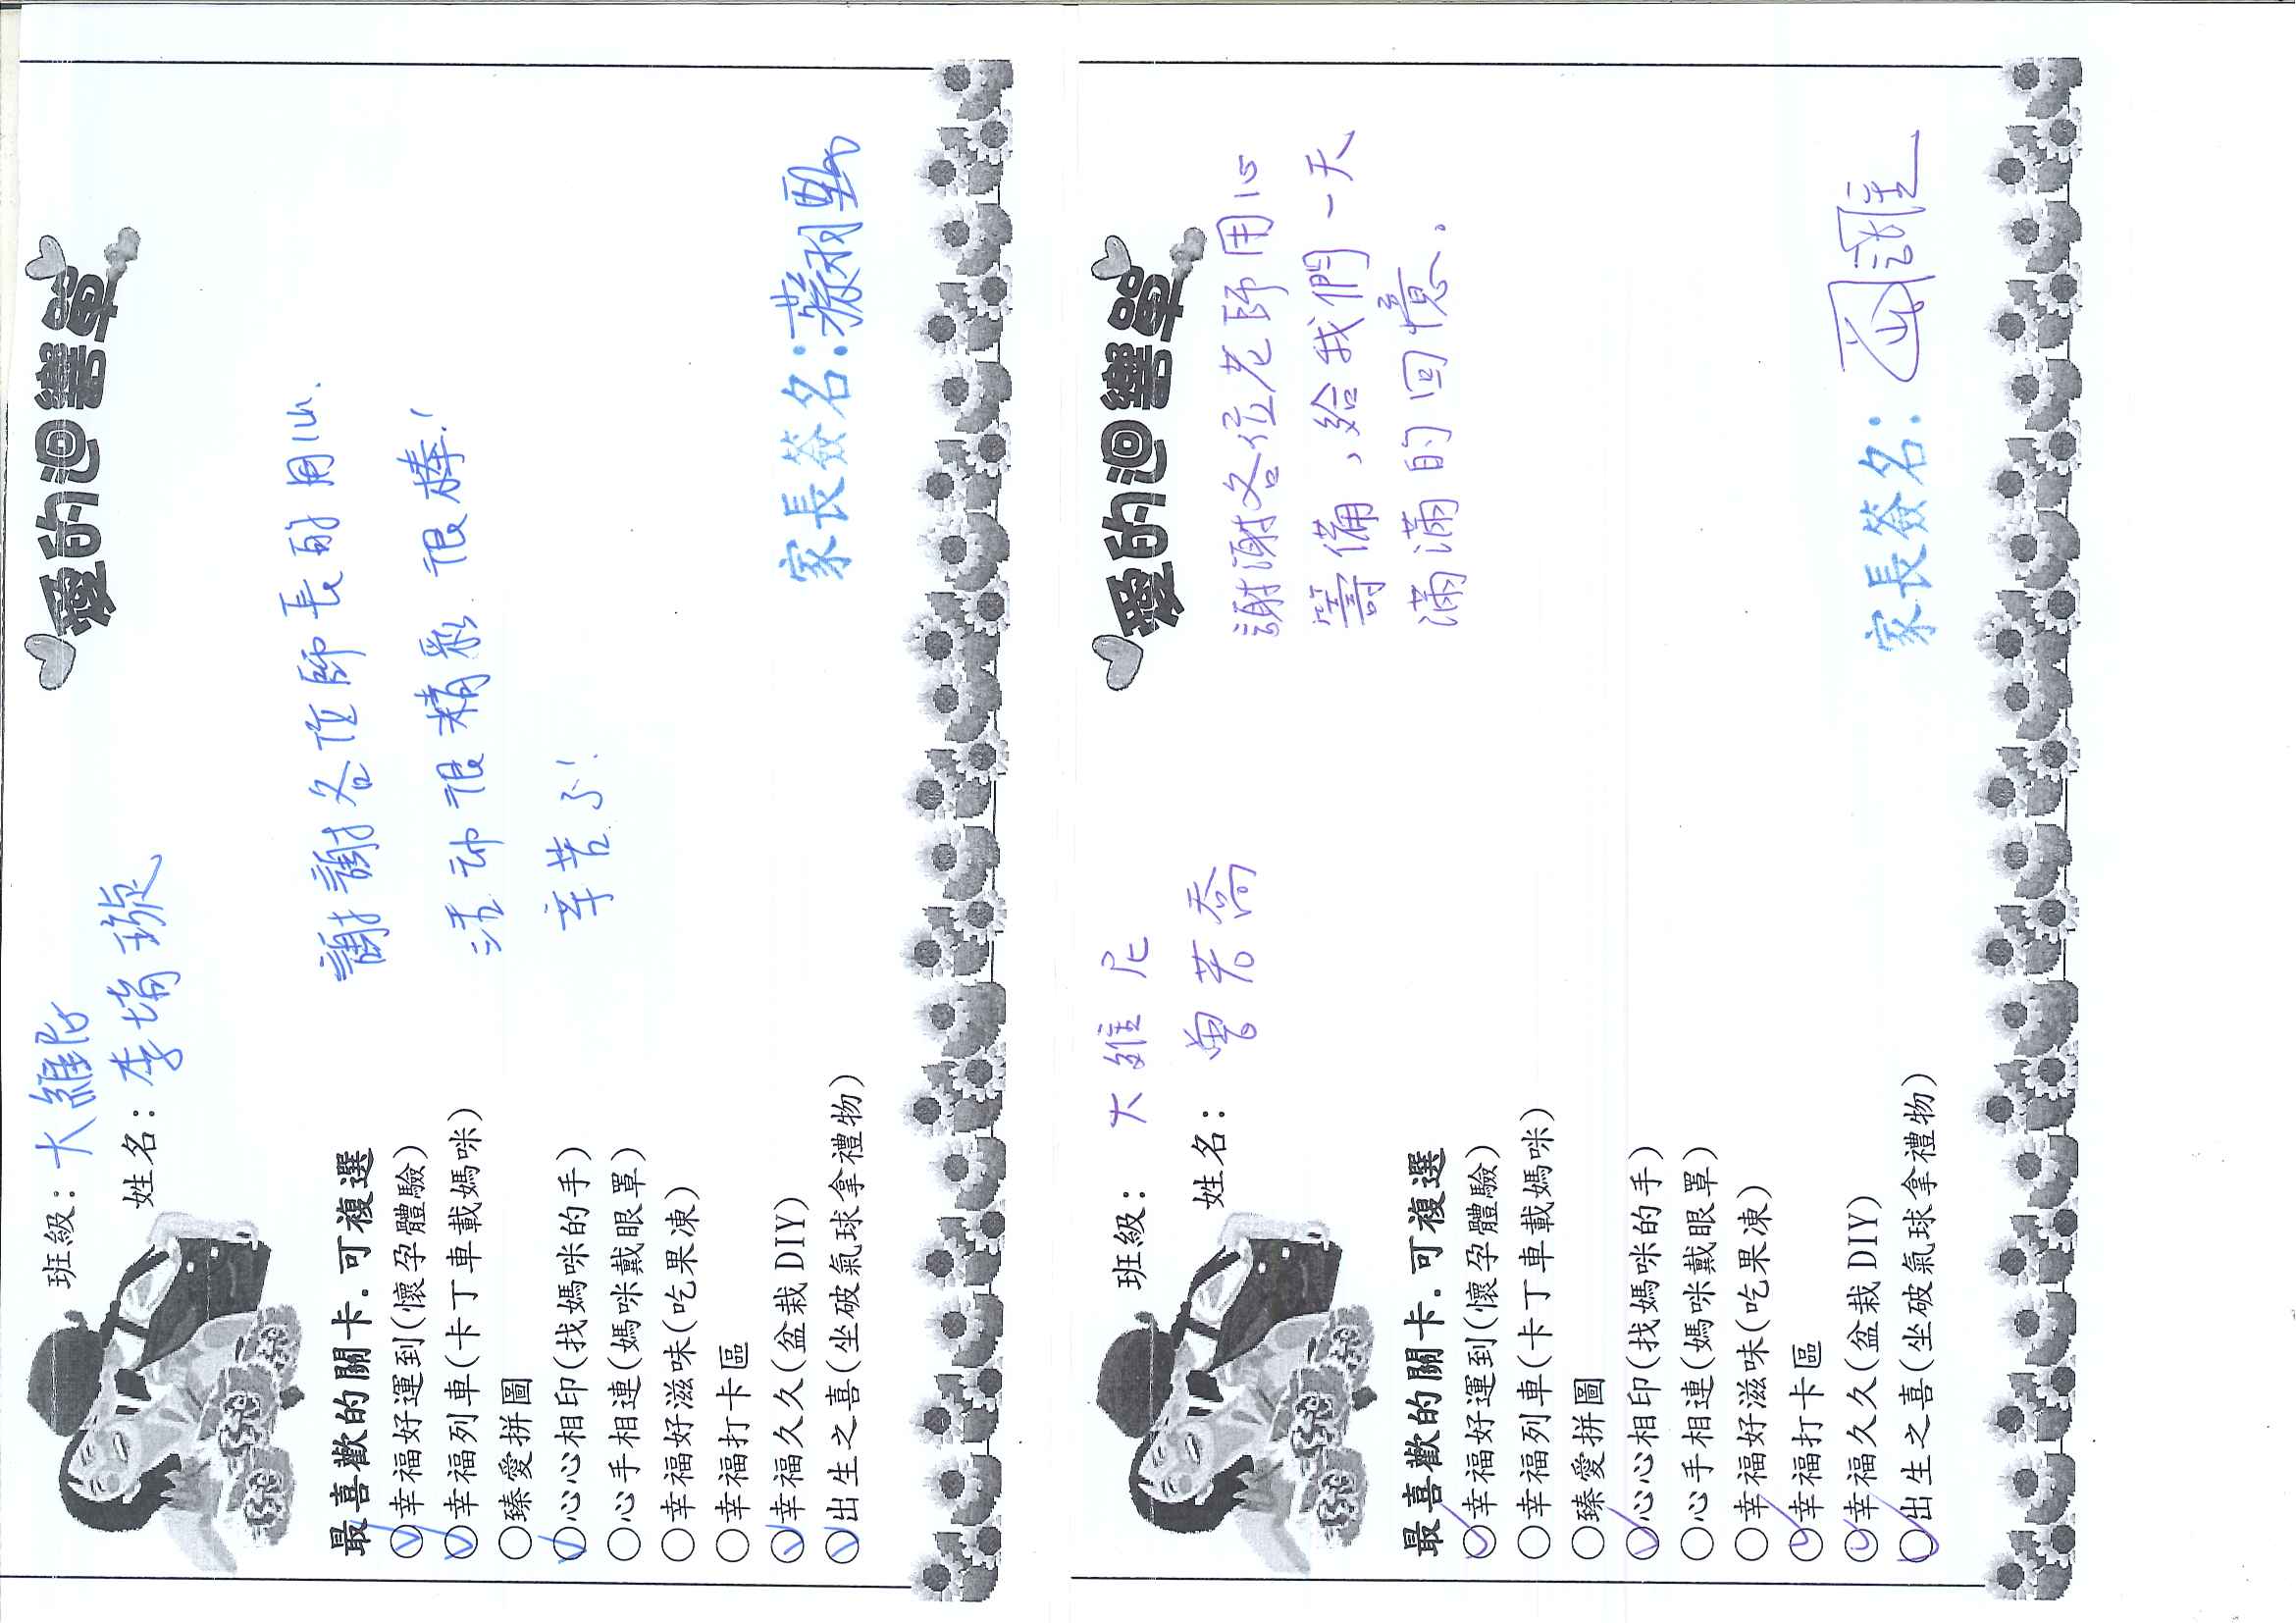 愛的迴響單
班級：大維尼
姓名：李堉璇
最喜歡的關卡.可複選
○幸福好運到(懷孕體驗)
○幸福列車(卡丁車載媽咪)
○臻愛拼圖
○心心相印(找媽咪的手)
○心手相連(媽咪戴眼罩)
○幸福好滋味(吃果凍)
○幸福打卡區
○幸福久久(盆栽DIY)
○出生之喜(坐破氣球拿禮物)
謝謝各位師長的用心.
活動很精彩 很棒!
辛苦了!
家長簽名:
愛的迴響單
班級：大維尼
姓名：曾若喬
最喜歡的關卡.可複選
○幸福好運到(懷孕體驗)
○幸福列車(卡丁車載媽咪)
○臻愛拼圖
○心心相印(找媽咪的手)
○心手相連(媽咪戴眼罩)
○幸福好滋味(吃果凍)
○幸福打卡區
○幸福久久(盆栽DIY)
○出生之喜(坐破氣球拿禮物)
謝謝各位老師用心
籌備，給我們一天
滿滿的回憶。
家長簽名: